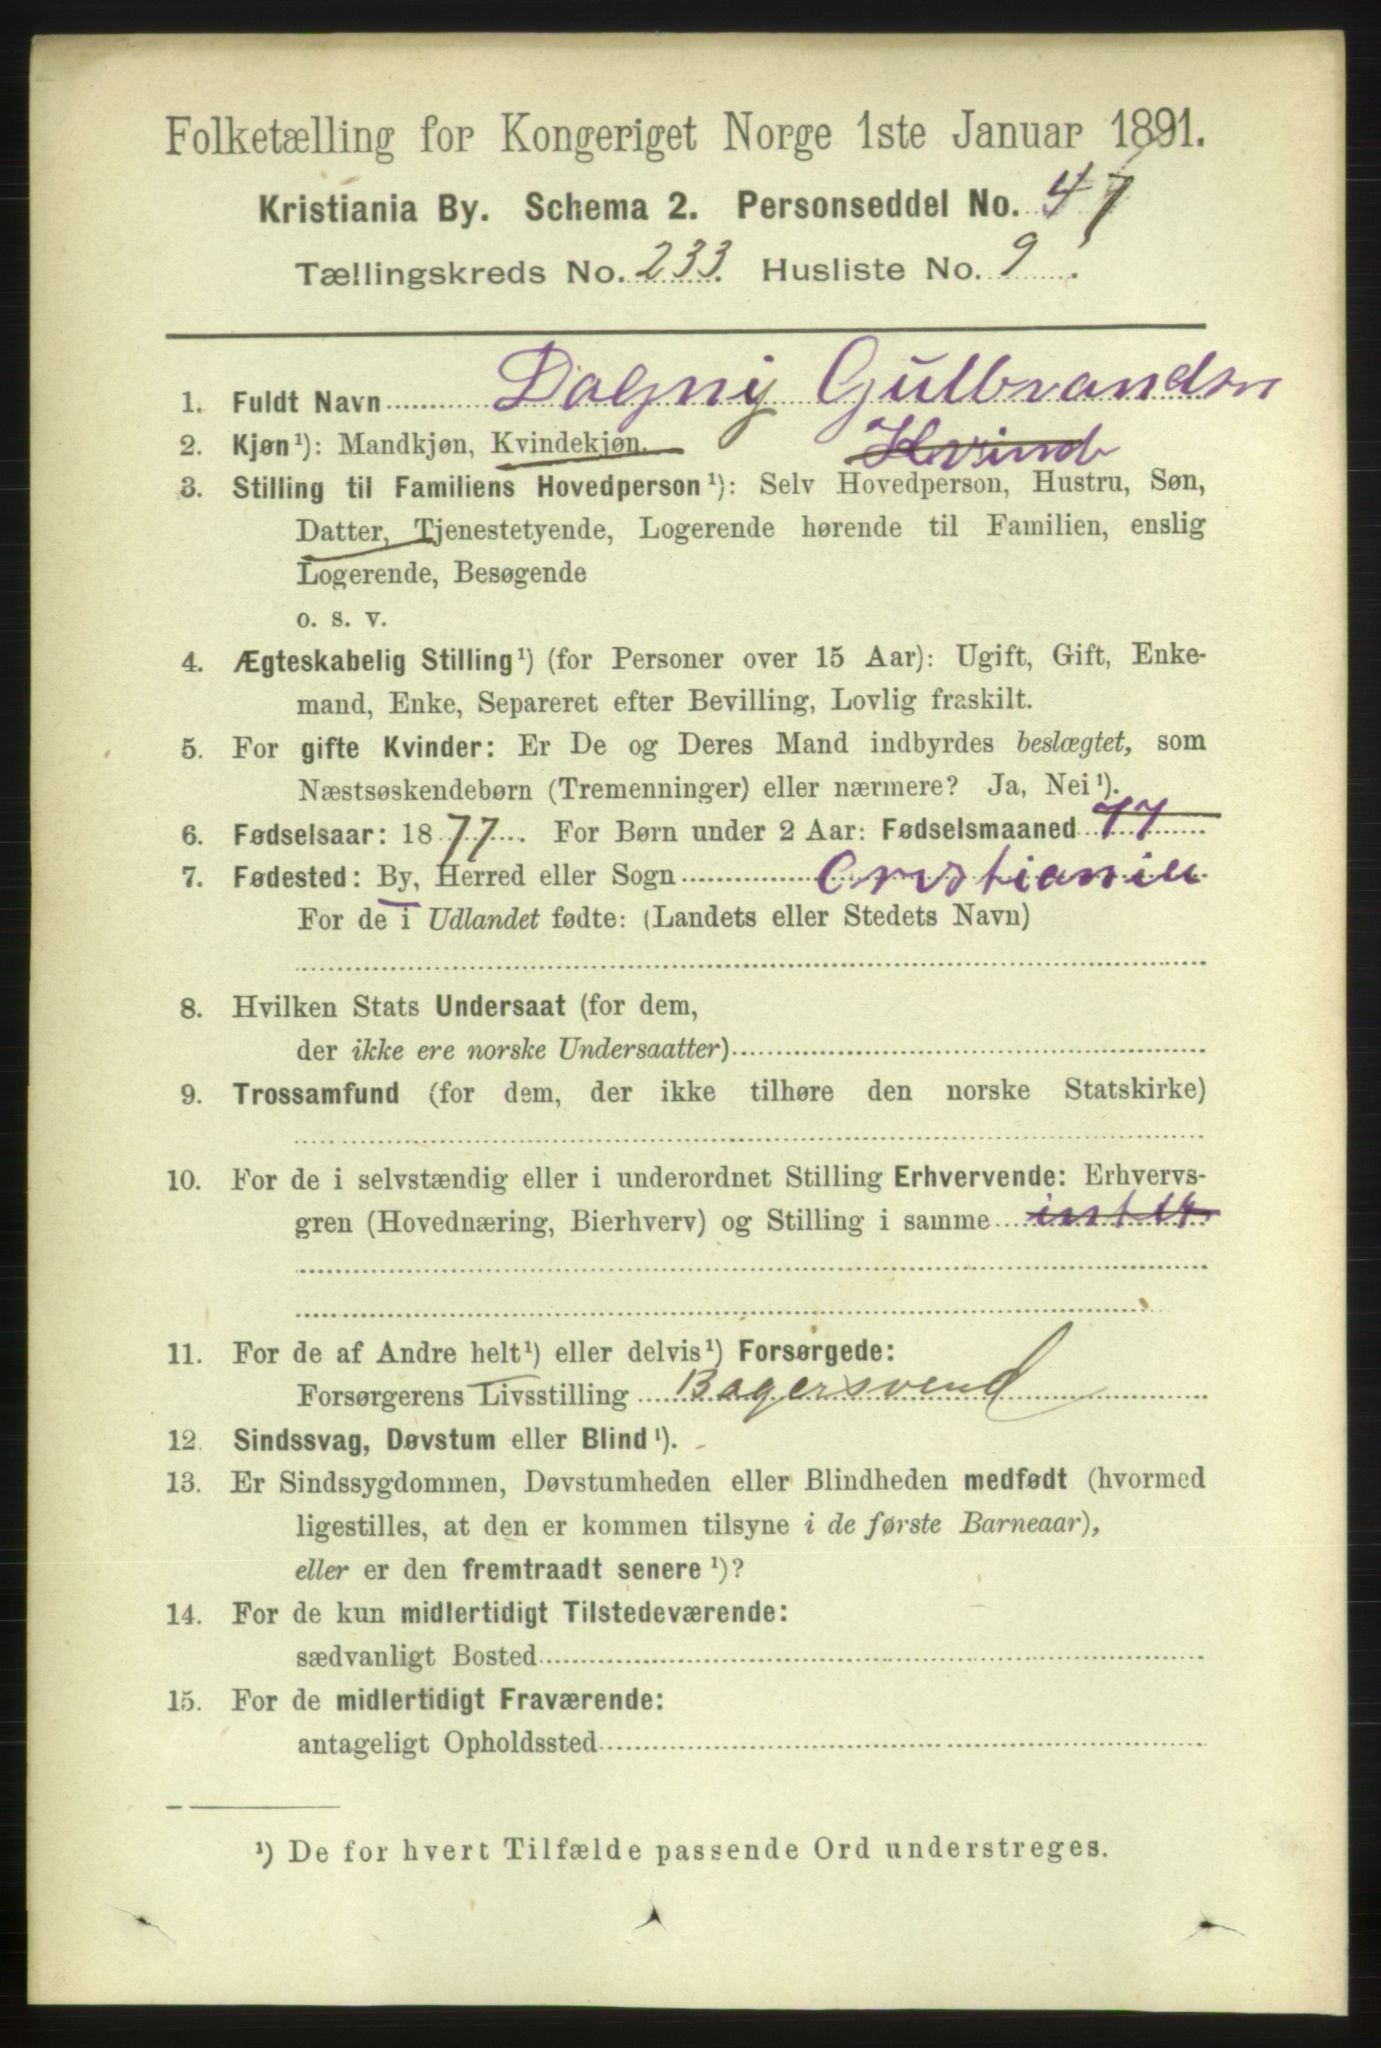 Folketælling for Kongeriget Norge 1ste Januar 1891.
Kristiania By. Schema 2. Personseddel No. 47
Tællingskreds No. 233. Husliste No. 9.
1. Fuldt Navn Dagny Gulbrandsn
2. Kjøn¹): Mandkjøn, Kvindekjøn. Kvinde
3. Stilling til Familiens Hovedperson¹): Selv Hovedperson, Hustru, Søn,
Datter, Tjenestetyende, Logerende hørende til Familien, enslig
Logerende, Besøgende
o. s. v.
4. Ægteskabelig Stilling¹) (for Personer over 15 Aar): Ugift, Gift, Enke-
mand, Enke, Separeret efter Bevilling, Lovlig fraskilt.
5. For gifte Kvinder: Er De og Deres Mand indbyrdes beslægtet, som
Næstsøskendebørn (Tremenninger) eller nærmere? Ja, Nei¹).
6. Fødselsaar: 1877. For Børn under 2 Aar: Fødselsmaaned 77
7. Fødested: By, Herred eller Sogn Cristiania
For de i Udlandet fødte: (Landets eller Stedets Navn)
8. Hvilken Stats Undersaat (for dem,
der ikke ere norske Undersaatter)
9. Trossamfund (for dem, der ikke tilhøre den norske Statskirke)
10. For de i selvstændig eller i underordnet Stilling Erhvervende: Erhvervs-
gren (Hovednæring, Bierhverv) og Stilling i samme
11. For de af Andre helt¹) eller delvis¹) Forsørgede:
Forsørgerens Livsstilling Bagersvend
12. Sindssvag, Døvstum eller Blind¹).
13. Er Sindssygdommen, Døvstumheden eller Blindheden medfødt (hvormed
ligestilles, at den er kommen tilsyne i de første Barneaar),
eller er den fremtraadt senere¹)?
14. For de kun midlertidigt Tilstedeværende:
sædvanligt Bosted
15. For de midlertidigt Fraværende:
antageligt Opholdssted
¹) De for hvert Tilfælde passende Ord understreges.